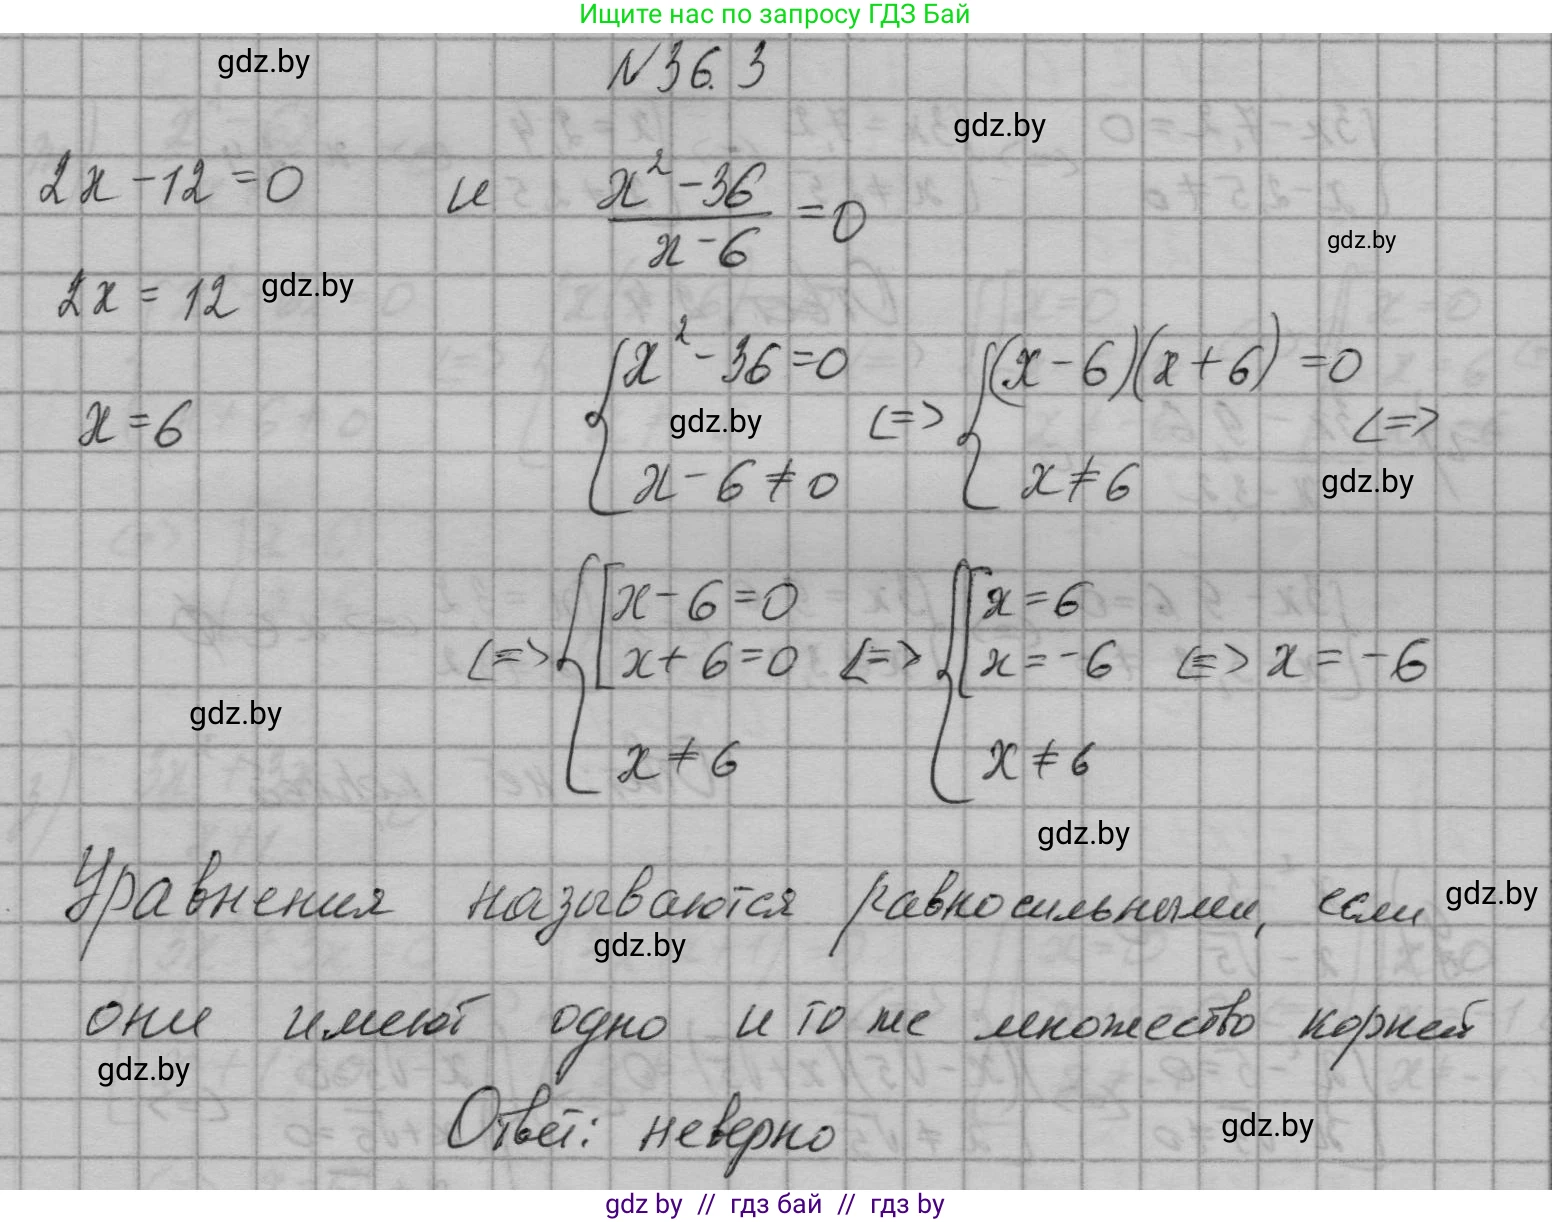 Ищите нас по запросу ГДЗ Бай
gdz.by
N 36.3
gdz.by
2x - 12 = 0 и (x² - 36)/(x - 6) = 0
gdz.by
2x = 12
gdz.by
{ x² - 36 = 0 <=> { (x - 6)(x + 6) = 0 <=>
x = 6
gdz.by
x - 6 ≠ 0 x ≠ 6
gdz.by
<=> { [ x - 6 = 0 <=> { [ x = 6
x + 6 = 0 x = -6 <=> x = -6
gdz.by
x ≠ 6 x ≠ 6
gdz.by
Уравнения называются равносильными, если
gdz.by
gdz.by
они имеют одно и то же множество корней
gdz.by
Ответ: неверно
gdz.by
gdz by // гдз бай // гдз by